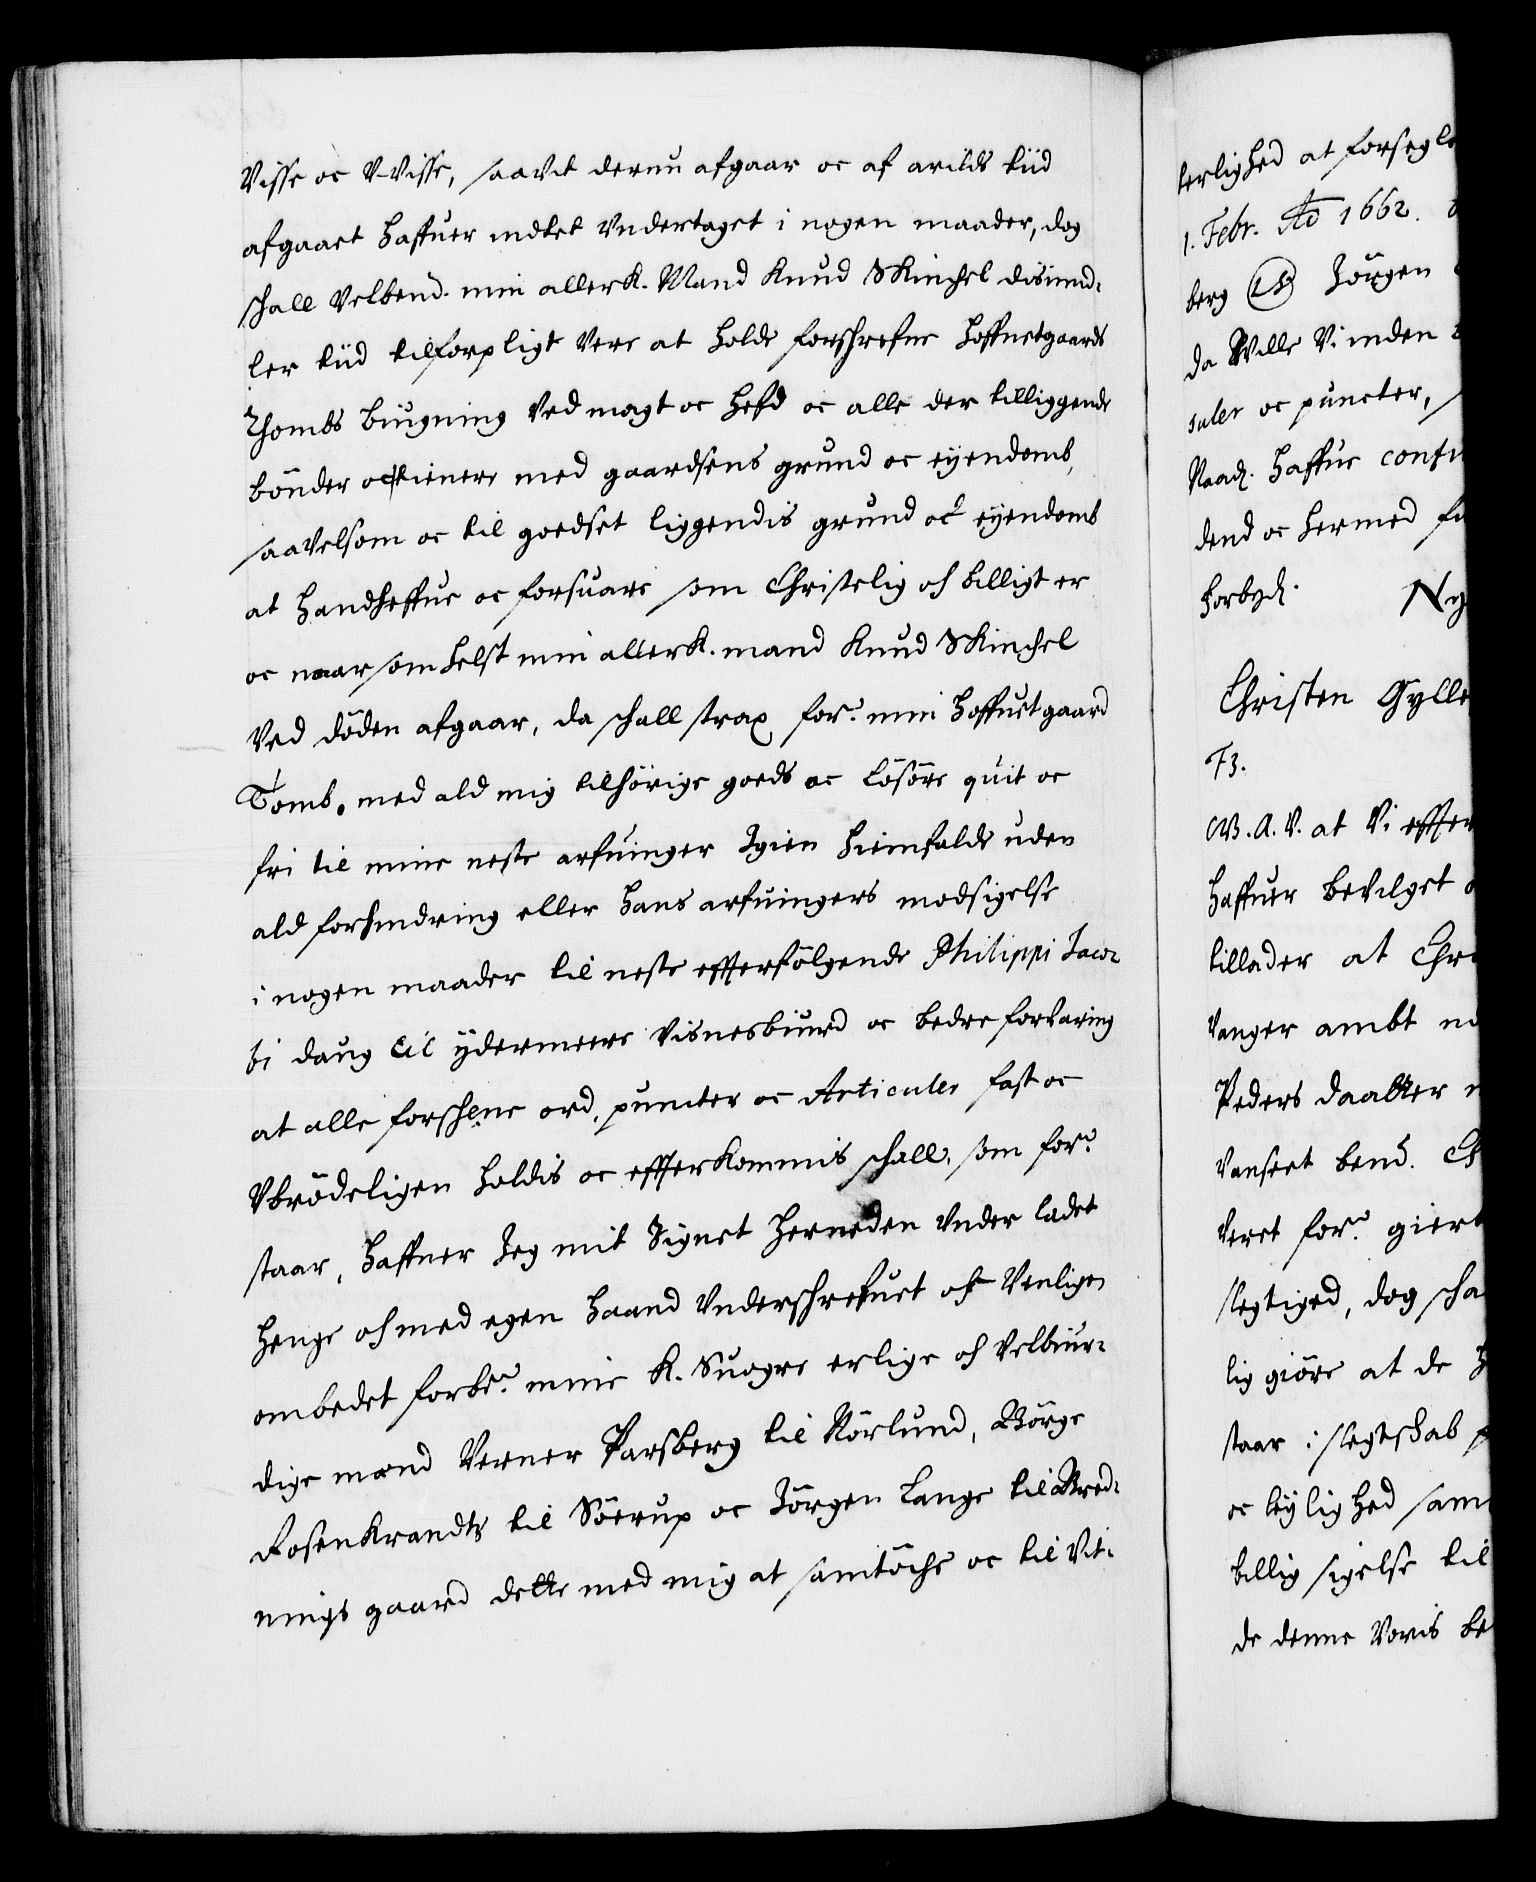 Visse oc V-Visse, saavit dernu afgaar oc af arilds tiid
afgaaet haffuer indtet Vndertaget i nogen maader, dog
schall Velbend. min allerk. Mand Knud SKinchel disimid-
ler tiid tilforpligt Vere at holde forschrefne Hoffuetgaards
Thombs biugning Ved magt oc hefd oc alle der tilliggende
bönder oc tienere med gaardsens grund oc eyendomb,
saavelsom oc til goedset liggendis grund oc eyendomb
at handheffue oc forsuare som Christelig och billigt er
oc naar somhelst min allerk. mand Knud SKinchel
Ved döden afgaar, da schall strax for: min Hoffuetgaard
Tomb, med ald mig tilhörige goeds oc lösöre quit oc
fri til mine neste arfuinger Igien hiemfalde uden
ald forhindring eller hans arfuingers modsigelse
i nogen maader til neste effterfölgende Philippi Jaco-
bi daug til ydermeere Visnesbiurd oc bedre forvaring
at alle forschrne ord, puncter oc Articuler fast oc
Vbrödeligen holdis oc effterkommis schall, som for:
staar, haffuer Jeg mit Signet herneden Vnder ladet
henge och med egen haand Vnderschrefuet och Venligen
ombedet forbe: mine K. Suogre erlige och Velbiur-
dige mænd Verner Parsberg til Nörlund, Börge
Rosenkrandts til Söerup oc Jörgen Lange til Bred-
nings gaard dette med mig at samtöche oc til Vit-
terlighed at forsegle
1. Febr. Ao 1662.
berg (LS) Jörgen
da Wille Vi inden
culer oc puncter,
Naad. haffue conf
dend oc hermed
forbyd. Ny
Christen Gylle
F3.
W.A.V. at Vi effter
haffuer beVilget
tillader at Chr
Vanger ambt
Peders daatter
Vanseet bend. Ch
Veret for: giert
slegtiged, dog scha
lig giöre at de
staar i slegtskab
oc leylighed sam
billig sigelse til
de denne Voris be